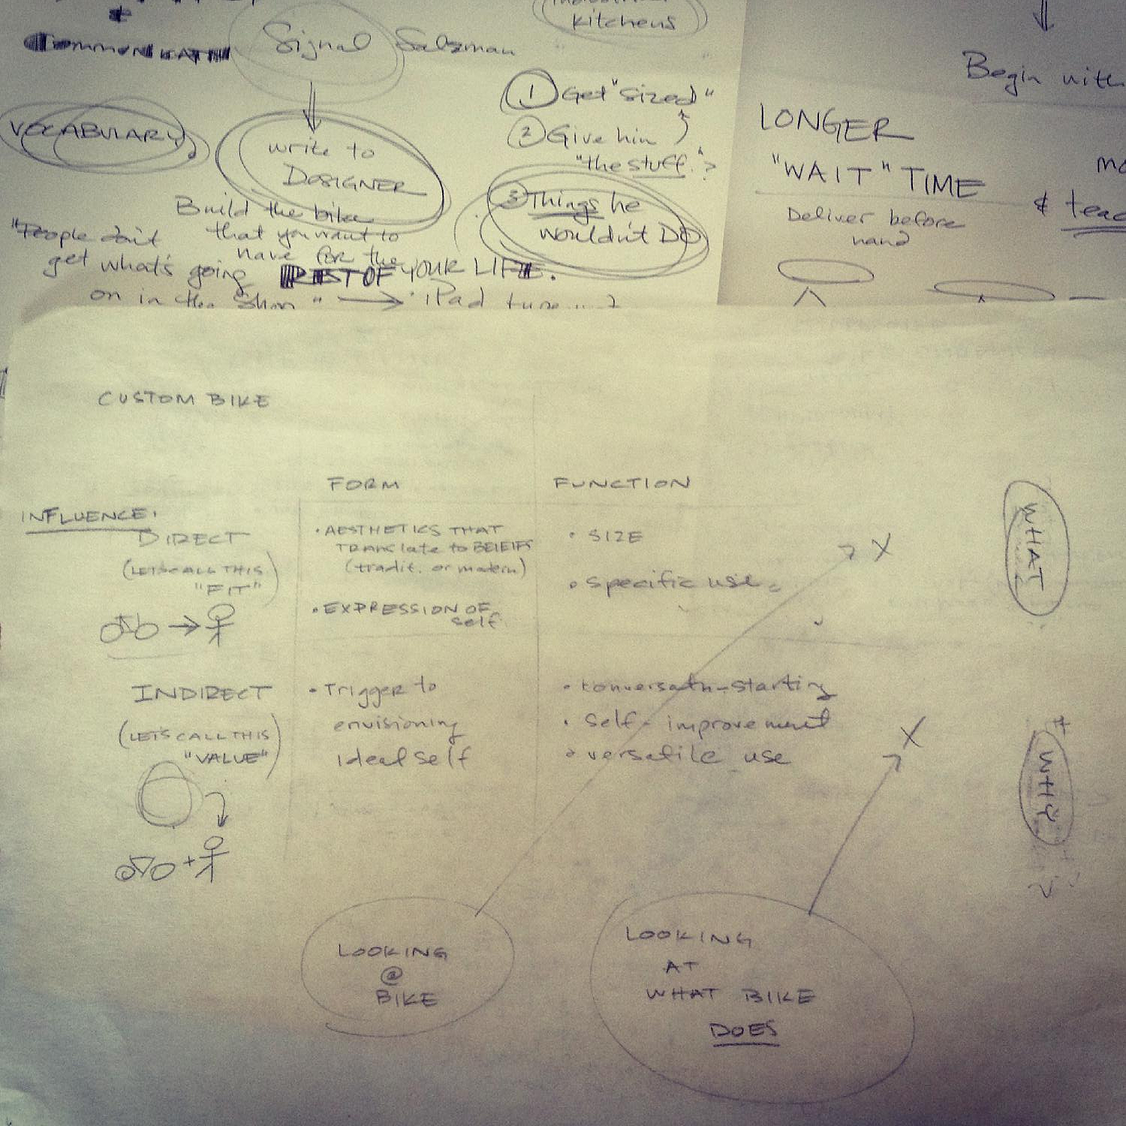 Signal Salzman
kitchens
VOCABULARY
write to
DESIGNER
① Get "sized"
② Give him
"the stuff"?
③ Things he
wouldn't DO
Build the bike
that you want to
have for the
REST OF YOUR LIFE.
"People don't
get what's going
on in the shop" → iPad
Begin with
LONGER
"WAIT" TIME
& teac
Deliver before
hand
CUSTOM BIKE
FORM
FUNCTION
INFLUENCE:
DIRECT
(LET'S CALL THIS
"FIT")
• AESTHETICS THAT
TRANSlate to BELIEFS
(tradit. or modern)
• EXPRESSION OF
self
• SIZE
• Specific use
X
WHAT
INDIRECT
(LET'S CALL THIS
"VALUE")
• Trigger to
envisioning
ideal self
• self-improvement
• versatile use
X
WHY
LOOKING
@
BIKE
LOOKING
AT
WHAT BIKE
DOES